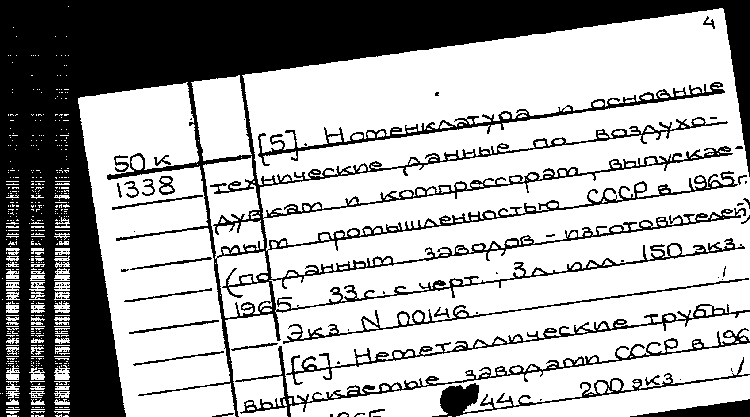 4
50 к
1338
[5]. Номенклатура и основные
технические данные по воздухо-
дувкам и компрессорам, выпускае-
мым промышленностью СССР в 1965г.
(по данным заводов - изготовителей)
1965. 33 с. с черт.; 3 л. илл. 150 экз.
Экз. N 00146.
[6]. Неметаллические трубы,
выпускаемые заводами СССР в 196
1965 44 с. 200 экз.